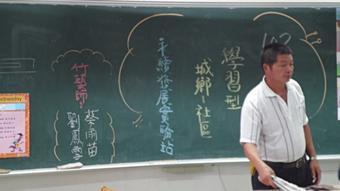 102
學習型
城鄉-社區
永續發展實驗站
竹藝師
蔡雨苗
劉鳳雪